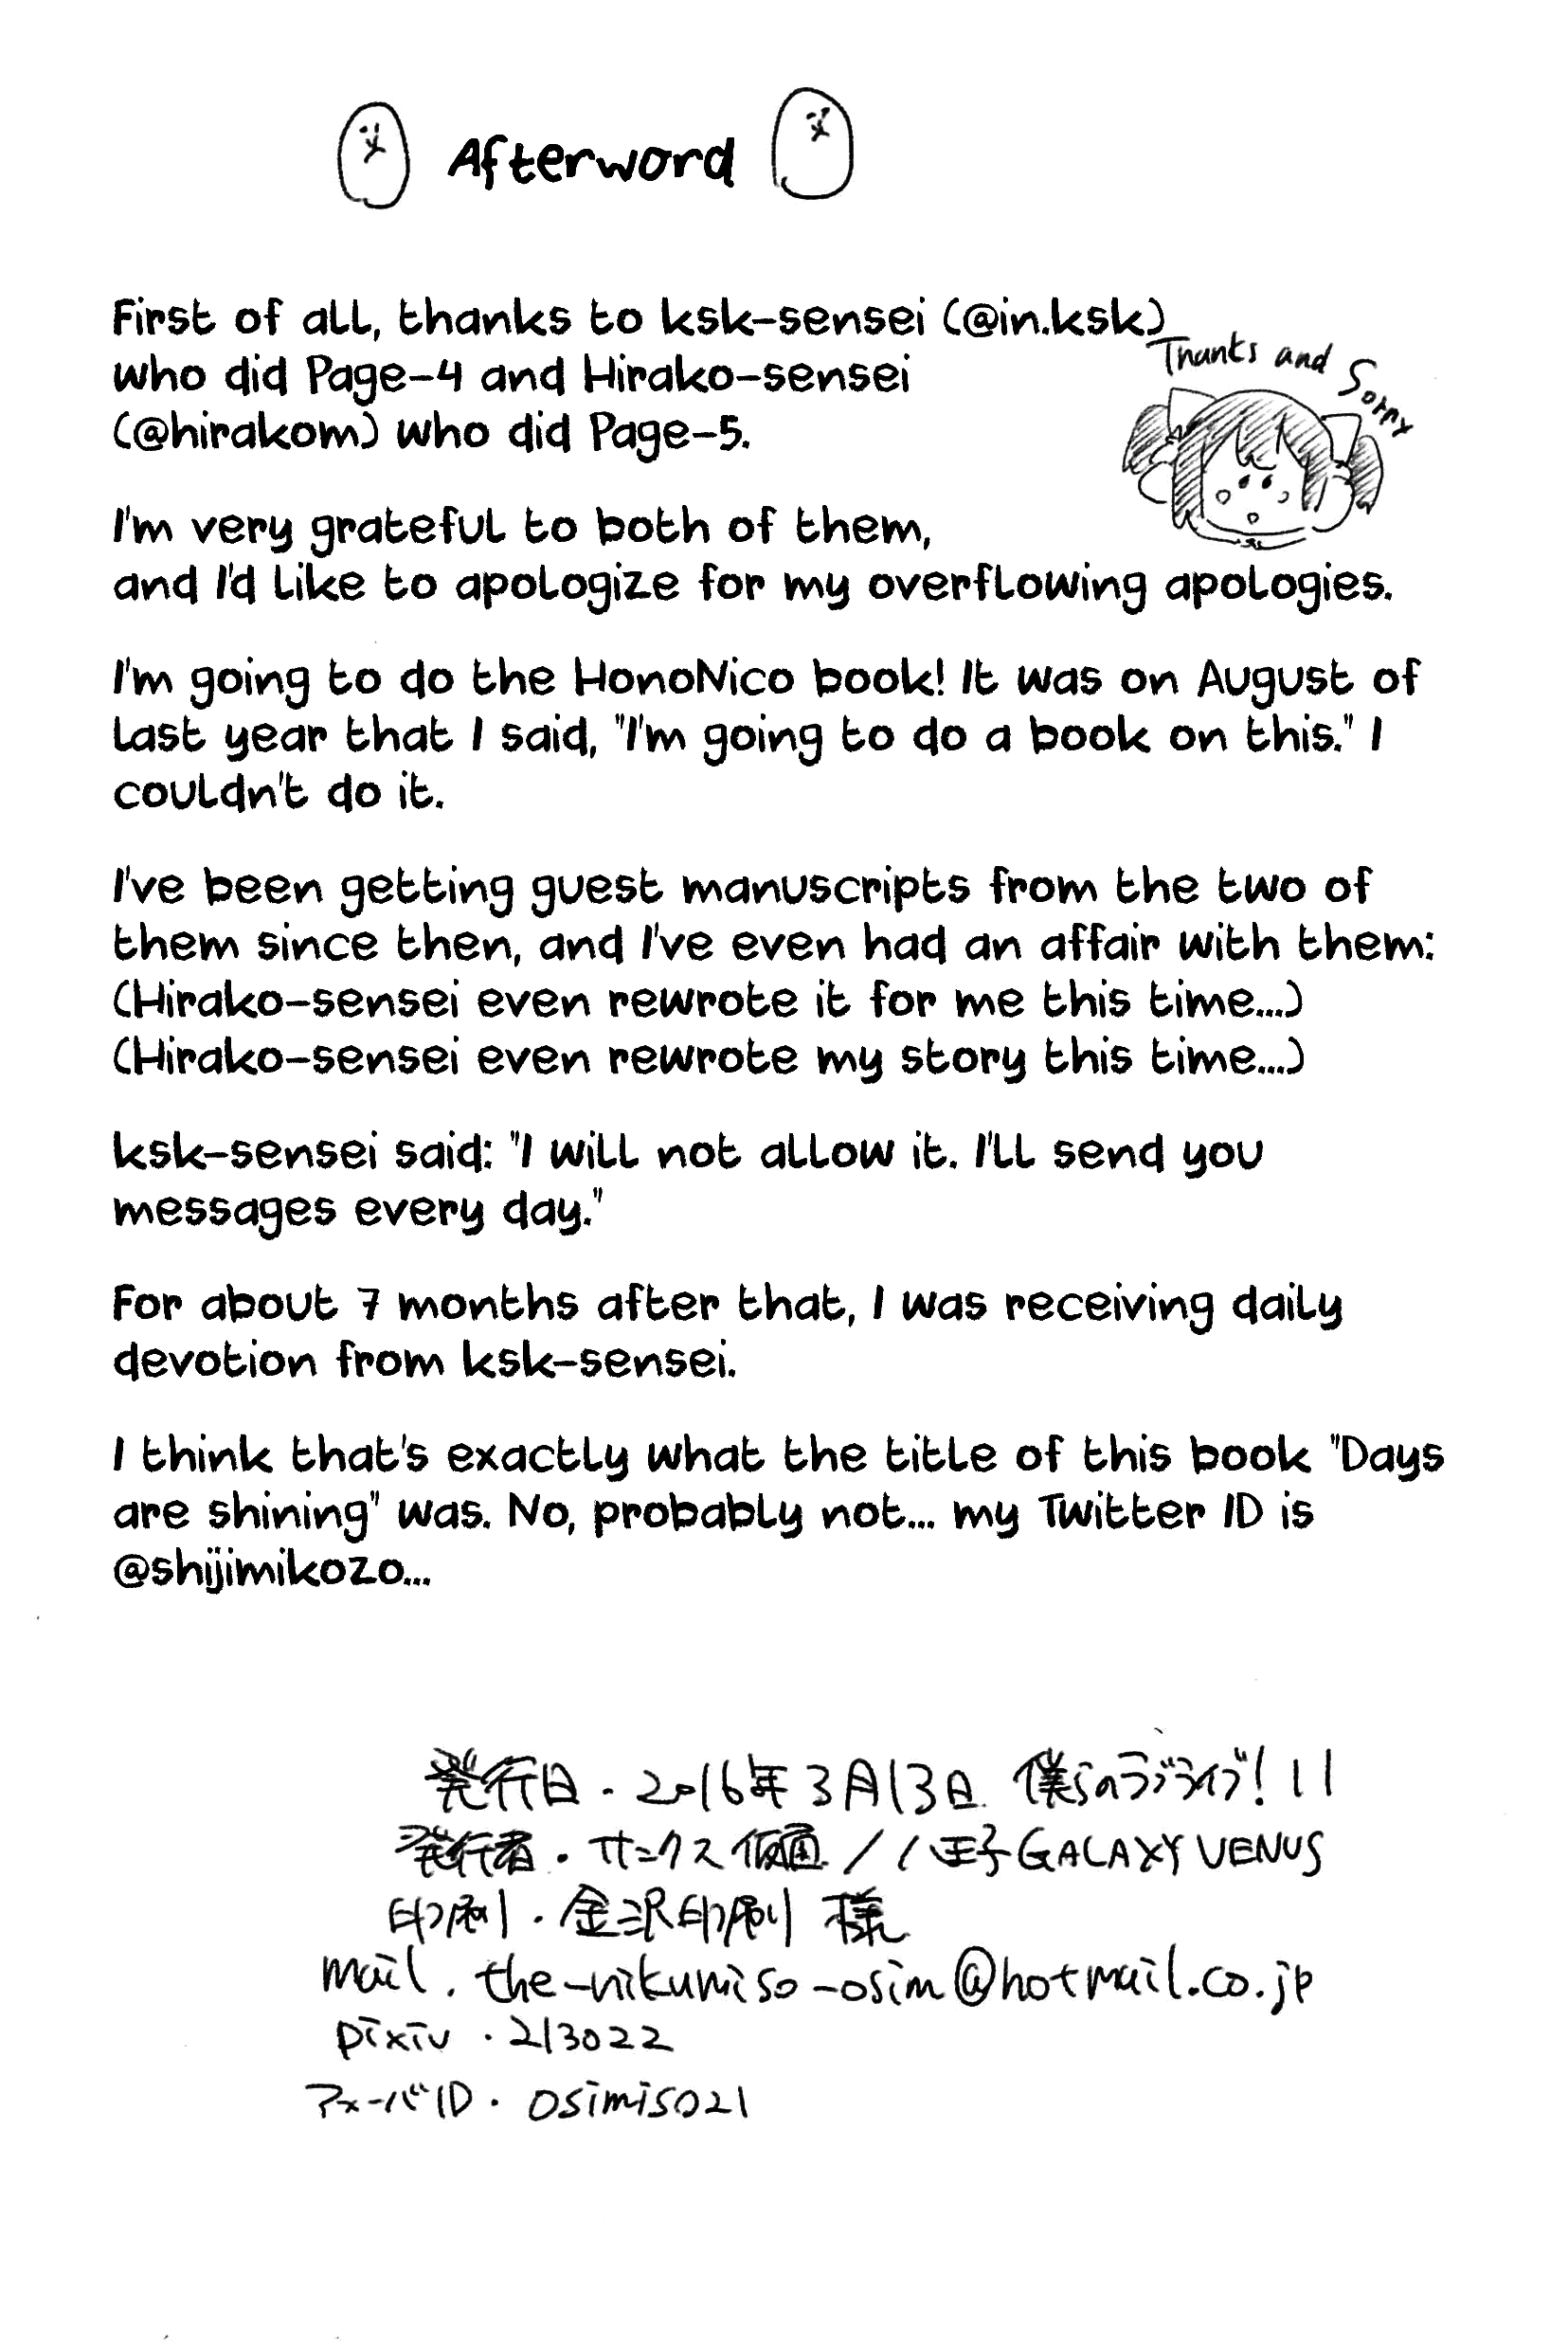 Afterword
First of all, thanks to ksk-sensei (@in.ksk)
who did Page-4 and Hirako-sensei
(@hirakom) who did Page-5.
Thanks and Sorry
I'm very grateful to both of them,
and I'd like to apologize for my overflowing apologies.
I'm going to do the HonoNico book! It was on August of
last year that I said, "I'm going to do a book on this." I
couldn't do it.
I've been getting guest manuscripts from the two of
them since then, and I've even had an affair with them:
(Hirako-sensei even rewrote it for me this time...)
(Hirako-sensei even rewrote my story this time....)
ksk-sensei said: "I will not allow it. I'll send you
messages every day."
For about 7 months after that, I was receiving daily
devotion from ksk-sensei.
I think that's exactly what the title of this book "Days
are shining" was. No, probably not... my Twitter ID is
@shijimikozo...
発行日・2016年3月13日 僕らのラブライブ!11
発行者・サニクス仮面//八王子GALAXY VENUS
印刷・金沢印刷 様
mail. the-nikumiso-osim@hotmail.co.jp
pixiv・213022
アメーバID・osimiso21